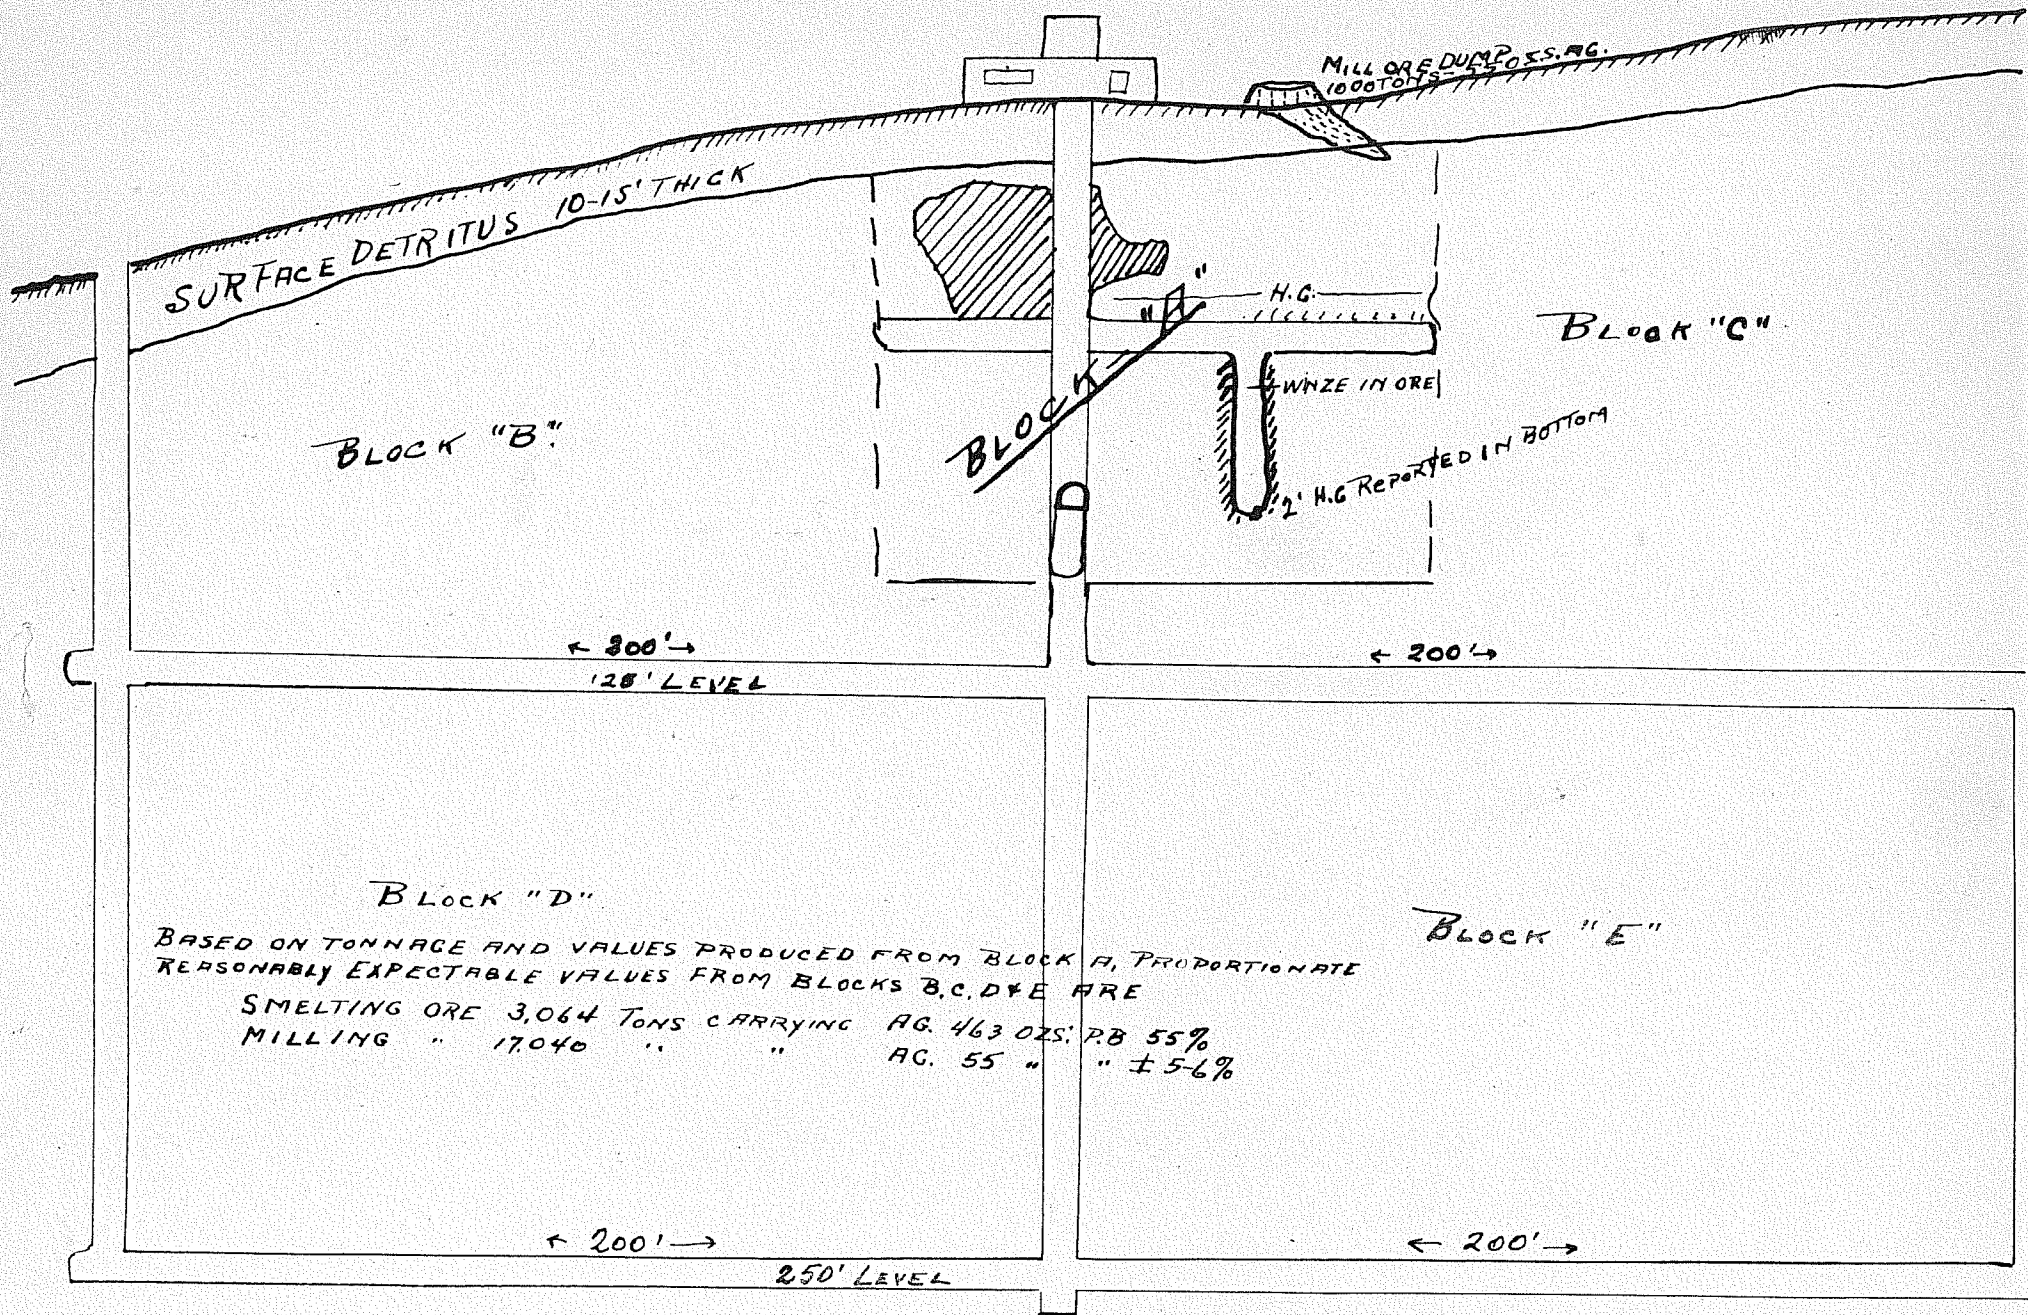 MILL ORE DUMP
OZS. AG.
1000 TONS
SURFACE DETRITUS 10-15' THICK
H.G.
BLOCK "A"
BLOCK "C"
WINZE IN ORE
BLOCK "B"
2' H.G REPORTED IN BOTTOM
← 200' →
← 200' →
125' LEVEL
BLOCK "D"
BLOCK "E"
BASED ON TONNAGE AND VALUES PRODUCED FROM BLOCK A, PROPORTIONATE
REASONABLY EXPECTABLE VALUES FROM BLOCKS B, C, D & E ARE
SMELTING ORE 3,064 TONS CARRYING AG. 463 OZS. P.B 55%
MILLING " 17.040 " " AG. 55 " " ± 5-6%
← 200' →
← 200' →
250' LEVEL